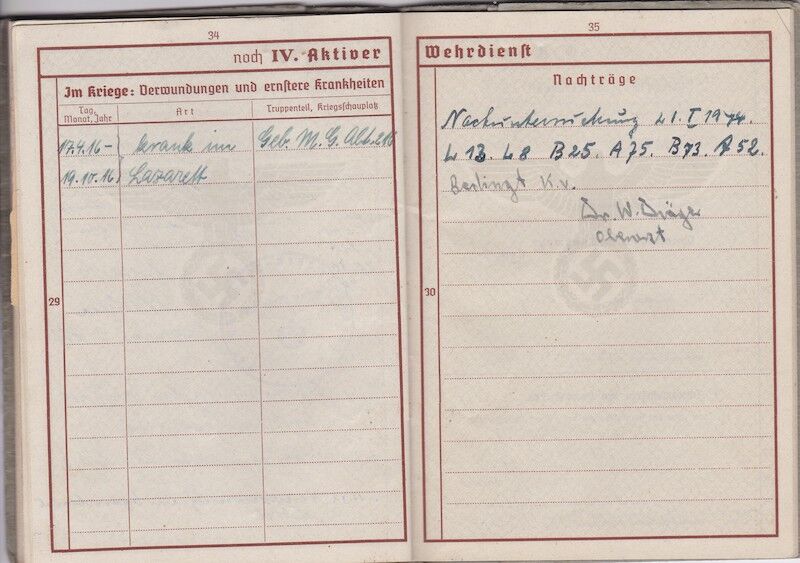 34
noch IV. Aktiver
Im Kriege: Verwundungen und ernstere Krankheiten
Tag, Monat, Jahr
Art
Truppenteil, Kriegsschauplatz
17.4.16 –
krank im
Geb. M. G. Abt.
19.10.16
Lazarett
29
35
Wehrdienst
Nachträge
Nachuntersuchung 21. I 1944.
L 13 L 8 B 25. A 75. B 73. A 52.
Bedingt K.v.
Dr. W.
Oberarzt
30